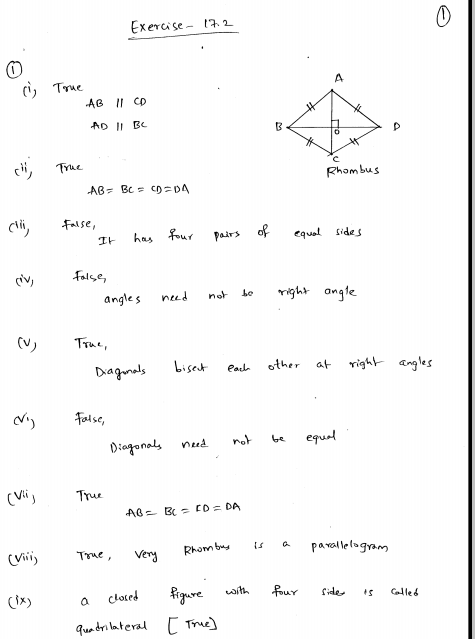 Exercise - 17.2
①
①
(i) True
AB || CD
AD || BC
A
B
O
D
C
Rhombus
(ii) True
AB = BC = CD = DA
(iii) False,
It has four pairs of equal sides
(iv) False,
angles need not be right angle
(v) True,
Diagonals bisect each other at right angles
(vi) False,
Diagonals need not be equal
(vii) True
AB = BC = CD = DA
(viii) True, Very Rhombus is a parallelogram
(ix) a closed figure with four sides is called
quadrilateral [True]